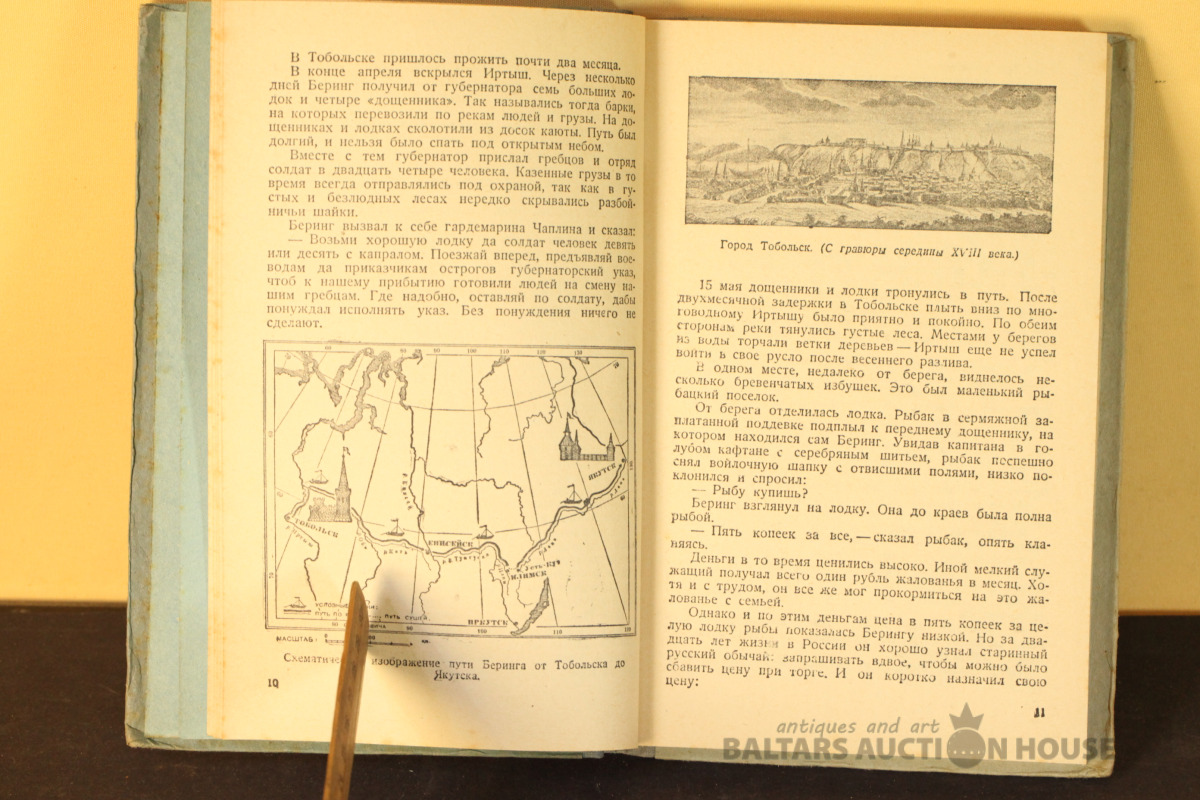 В Тобольске пришлось прожить почти два месяца.
В конце апреля вскрылся Иртыш. Через несколько
дней Беринг получил от губернатора семь больших ло-
док и четыре «дощенника». Так назывались тогда барки,
на которых перевозили по рекам людей и грузы. На до-
щенниках и лодках сколотили из досок каюты. Путь был
долгий, и нельзя было спать под открытым небом.
Вместе с тем губернатор прислал гребцов и отряд
солдат в двадцать четыре человека. Казенные грузы в то
время всегда отправлялись под охраной, так как в гу-
стых и безлюдных лесах нередко скрывались разбой-
ничьи шайки.
Беринг вызвал к себе гардемарина Чаплина и сказал:
— Возьми хорошую лодку да солдат человек девять
или десять с капралом. Поезжай вперед, предъявляй вое-
водам да приказчикам острогов губернаторский указ,
чтоб к нашему прибытию готовили людей на смену на-
шим гребцам. Где надобно, оставляй по солдату, дабы
понуждал исполнять указ. Без понуждения ничего не
сделают.
ЯКУТСК
ТОБОЛЬСК
ЕНИСЕЙСК
ИЛИМСК
ИРКУТСК
МАСШТАБ:
изображение пути Беринга от Тобольска до
Якутска.
10
Город Тобольск. (С гравюры середины XVIII века.)
15 мая дощенники и лодки тронулись в путь. После
двухмесячной задержки в Тобольске плыть вниз по мно-
говодному Иртышу было приятно и покойно. По обеим
сторонам реки тянулись густые леса. Местами у берегов
из воды торчали ветки деревьев — Иртыш еще не успел
войти в свое русло после весеннего разлива.
В одном месте, недалеко от берега, виднелось не-
сколько бревенчатых избушек. Это был маленький ры-
бацкий поселок.
От берега отделилась лодка. Рыбак в сермяжной за-
платанной поддевке подплыл к переднему дощеннику, на
котором находился сам Беринг. Увидав капитана в го-
лубом кафтане с серебряным шитьем, рыбак поспешно
снял войлочную шапку с отвисшими полями, низко по-
клонился и спросил:
— Рыбу купишь?
Беринг взглянул на лодку. Она до краев была полна
рыбой.
— Пять копеек за все, — сказал рыбак, опять кла-
няясь.
Деньги в то время ценились высоко. Иной мелкий слу-
жащий получал всего один рубль жалованья в месяц. Хо-
тя и с трудом, он все же мог прокормиться на это жа-
лованье с семьей.
Однако и по этим деньгам цена в пять копеек за це-
лую лодку рыбы показалась Берингу низкой. Но за два-
дцать лет жизни в России он хорошо узнал старинный
русский обычай: запрашивать вдвое, чтобы можно было
сбавить цену при торге. И он коротко назначил свою
цену:
11
antiques and art
BALTARS AUCTION HOUSE